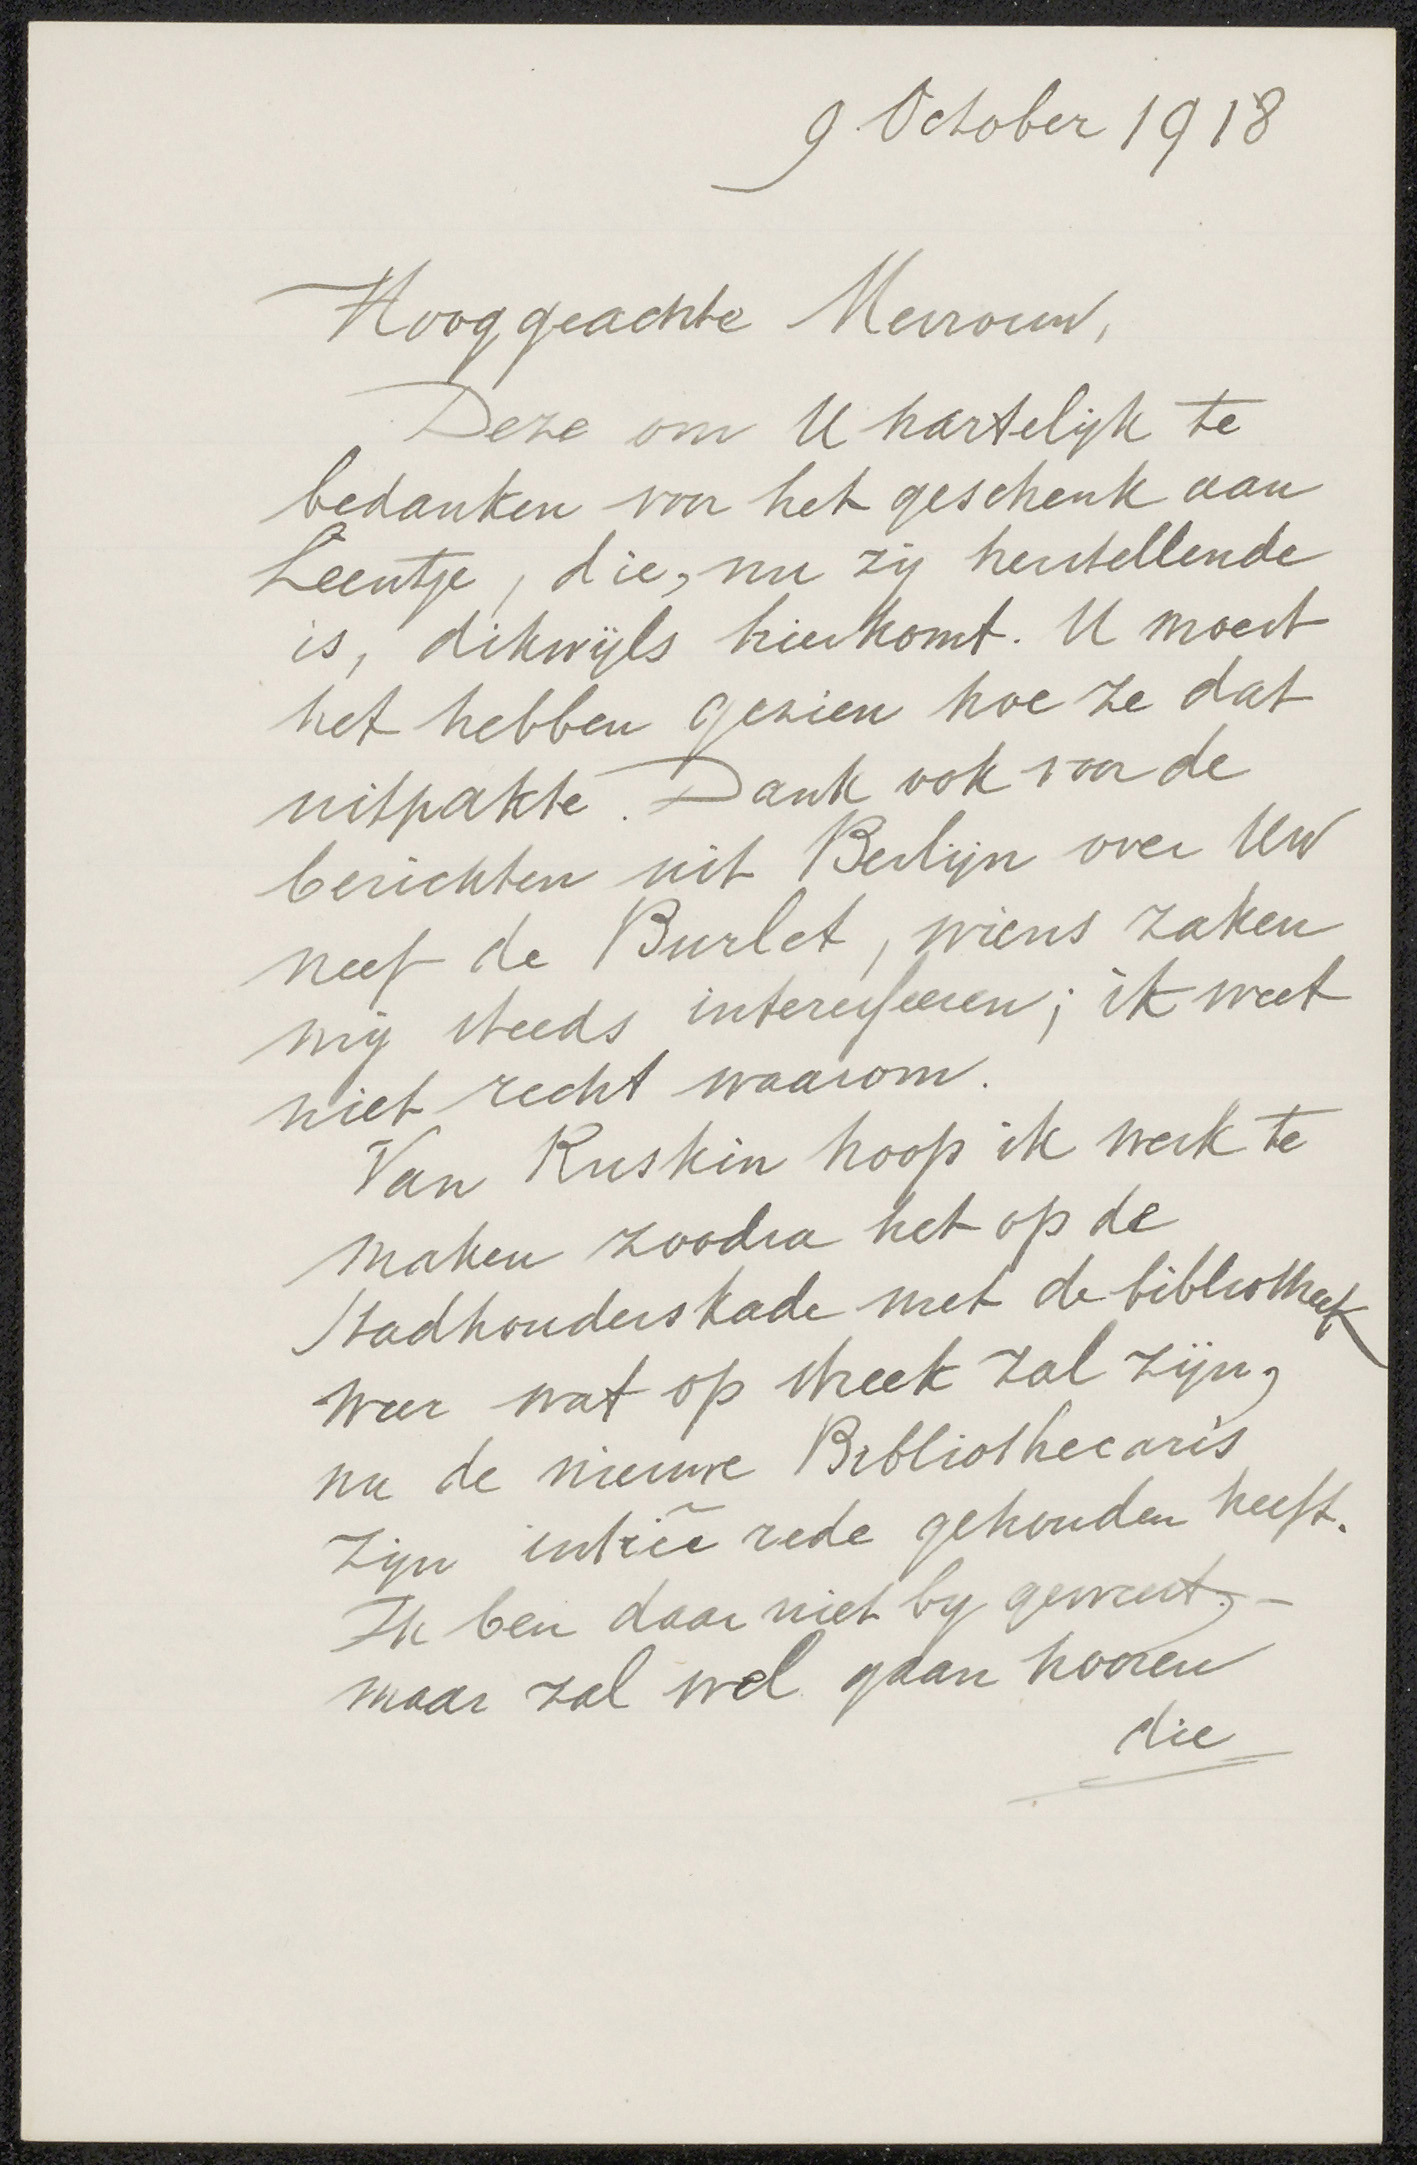 9 October 1918
Hooggeachte Mevrouw,
Deze om U hartelijk te
bedanken voor het geschenk aan
Leentje, die, nu zij herstellende
is, dikwijls hierkomt. U moest
het hebben gezien hoe ze dat
uitpakte. Dank ook voor de
berichten uit Berlijn over Uw
neef de Burlet, wiens zaken
mij steeds interesseeren; ik weet
niet recht waarom.
Van Ruskin hoop ik werk te
maken zoodra het op de
Stadhouderskade met de bibliotheek
weer wat op streek zal zijn,
nu de nieuwe Bibliothecaris
zijn intrêe rede gehouden heeft.
Ik ben daar niet by geweest, –
maar zal wel gaan hooren
die